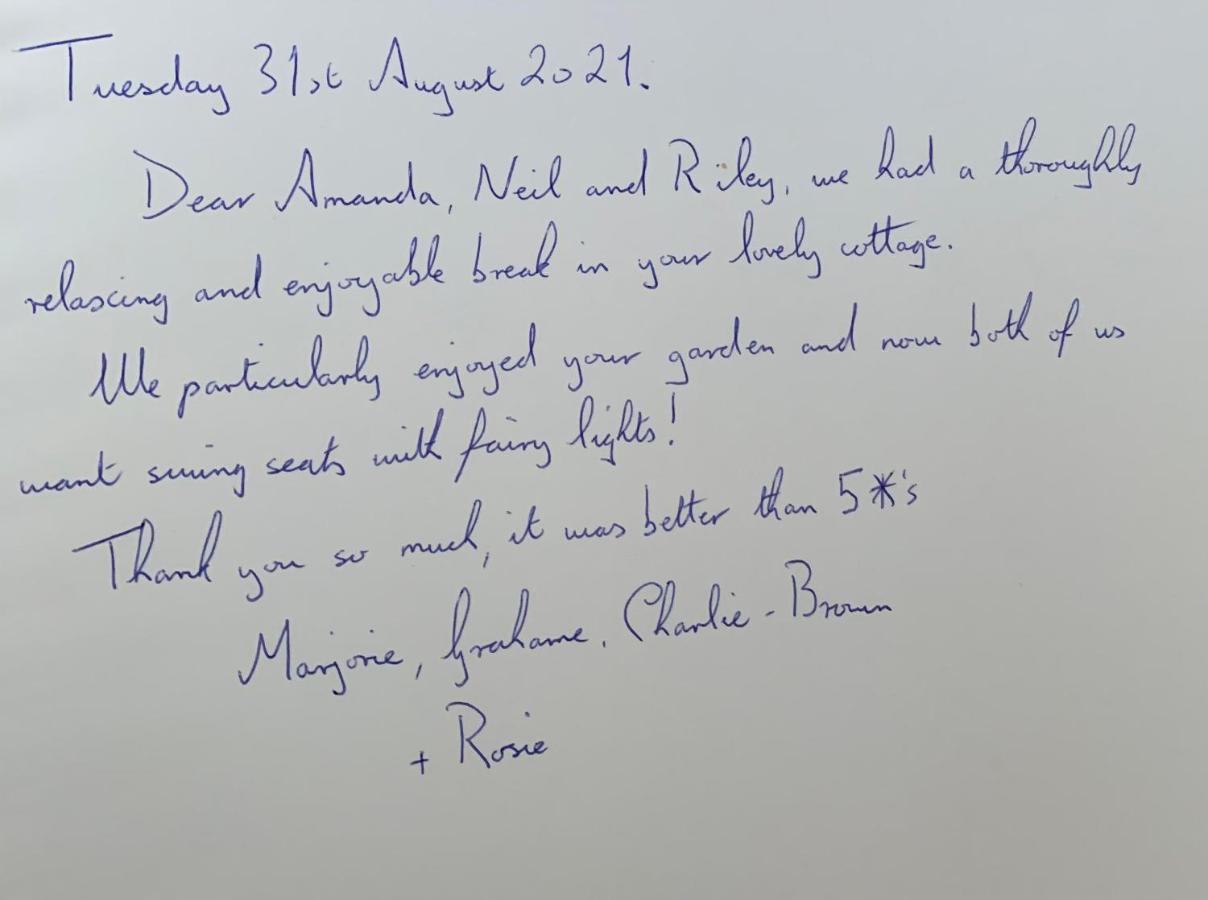 Tuesday 31st August 2021.
Dear Amanda, Neil and Riley, we had a thoroughly
relaxing and enjoyable break in your lovely cottage.
We particularly enjoyed your garden and now both of us
want swing seats with fairy lights!
Thank you so much, it was better than 5*'s
Marjorie, Grahame, Charlie-Brown
+ Rosie